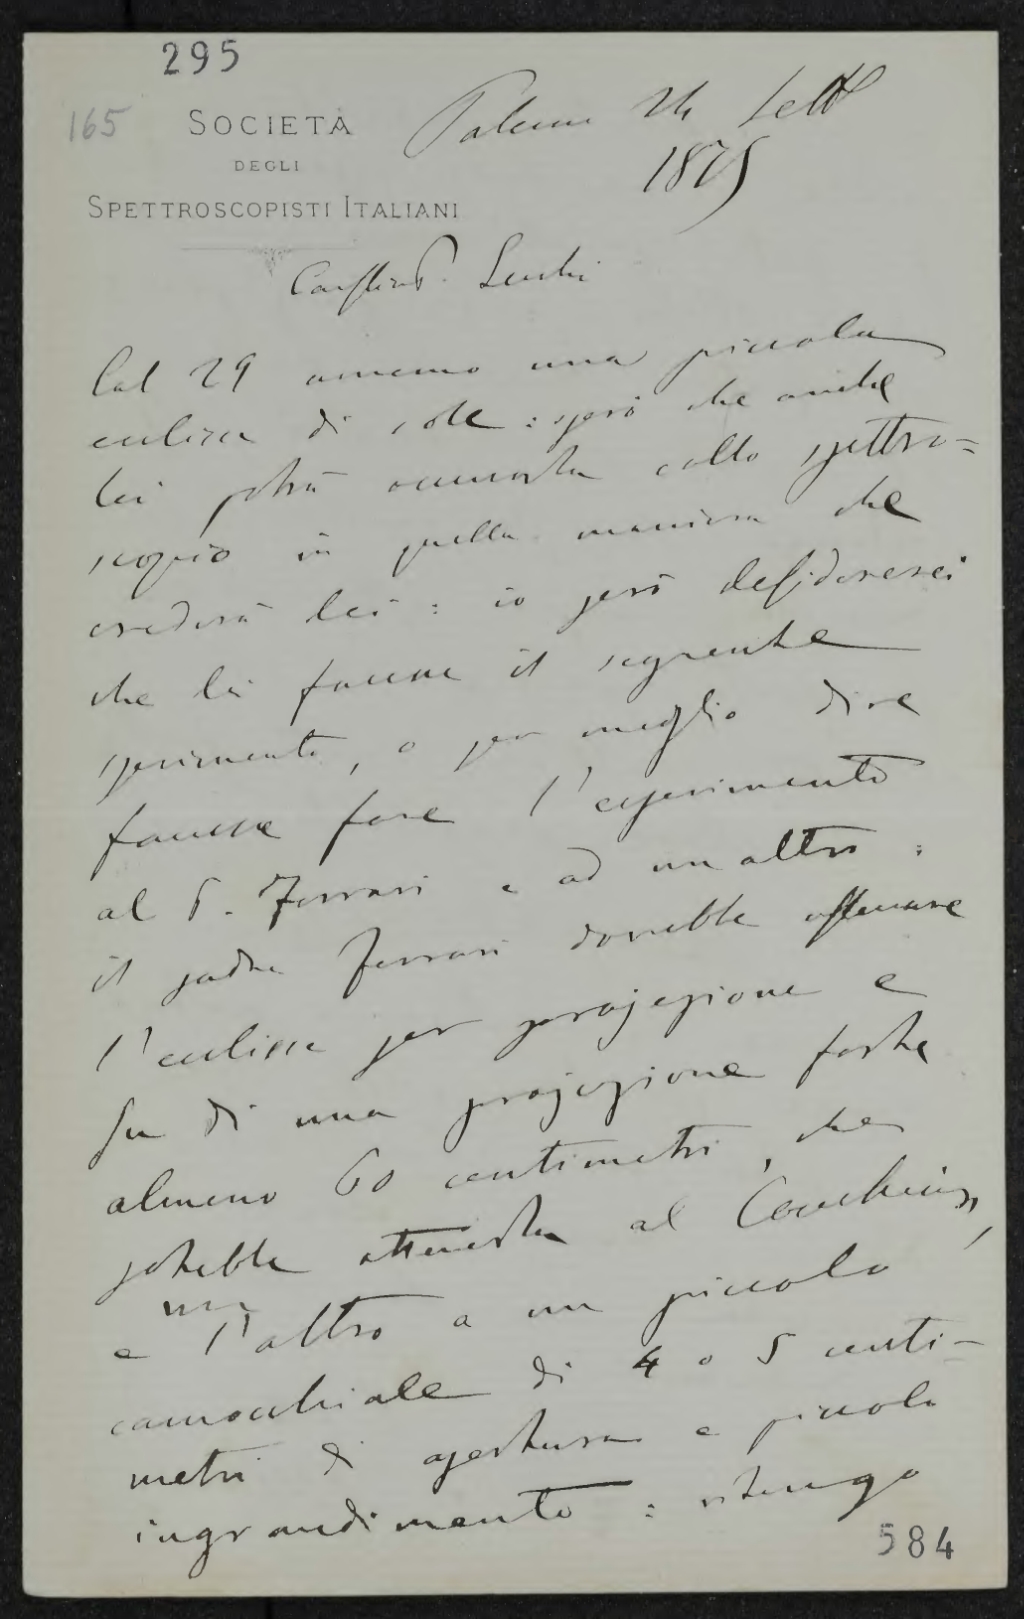 295
165
SOCIETÀ
DEGLI
SPETTROSCOPISTI ITALIANI
Palermo 24 Sett
1875
Caris P. Secchi
Col 29 avremo una piccola
eclisse di sole: spero che anche
lei potrà osservarla collo spettro=
scopio in quella maniera che
crederà lei: io però desidererei
che lei facesse il seguente
sperimento, o per meglio dire
facesse fare l'esperimento
al P. Ferrari e ad un altro:
il padre Ferrari dovrebbe osservare
l'eclisse per projezione e
su di una projezione forte
almeno 60 centimetri, che
potrebbe ottenersi al Cauchoix,
e l'altro a un piccolo
cannocchiale di 4 o 5 centi-
metri di apertura e piccolo
ingrandimento: ritengo
584